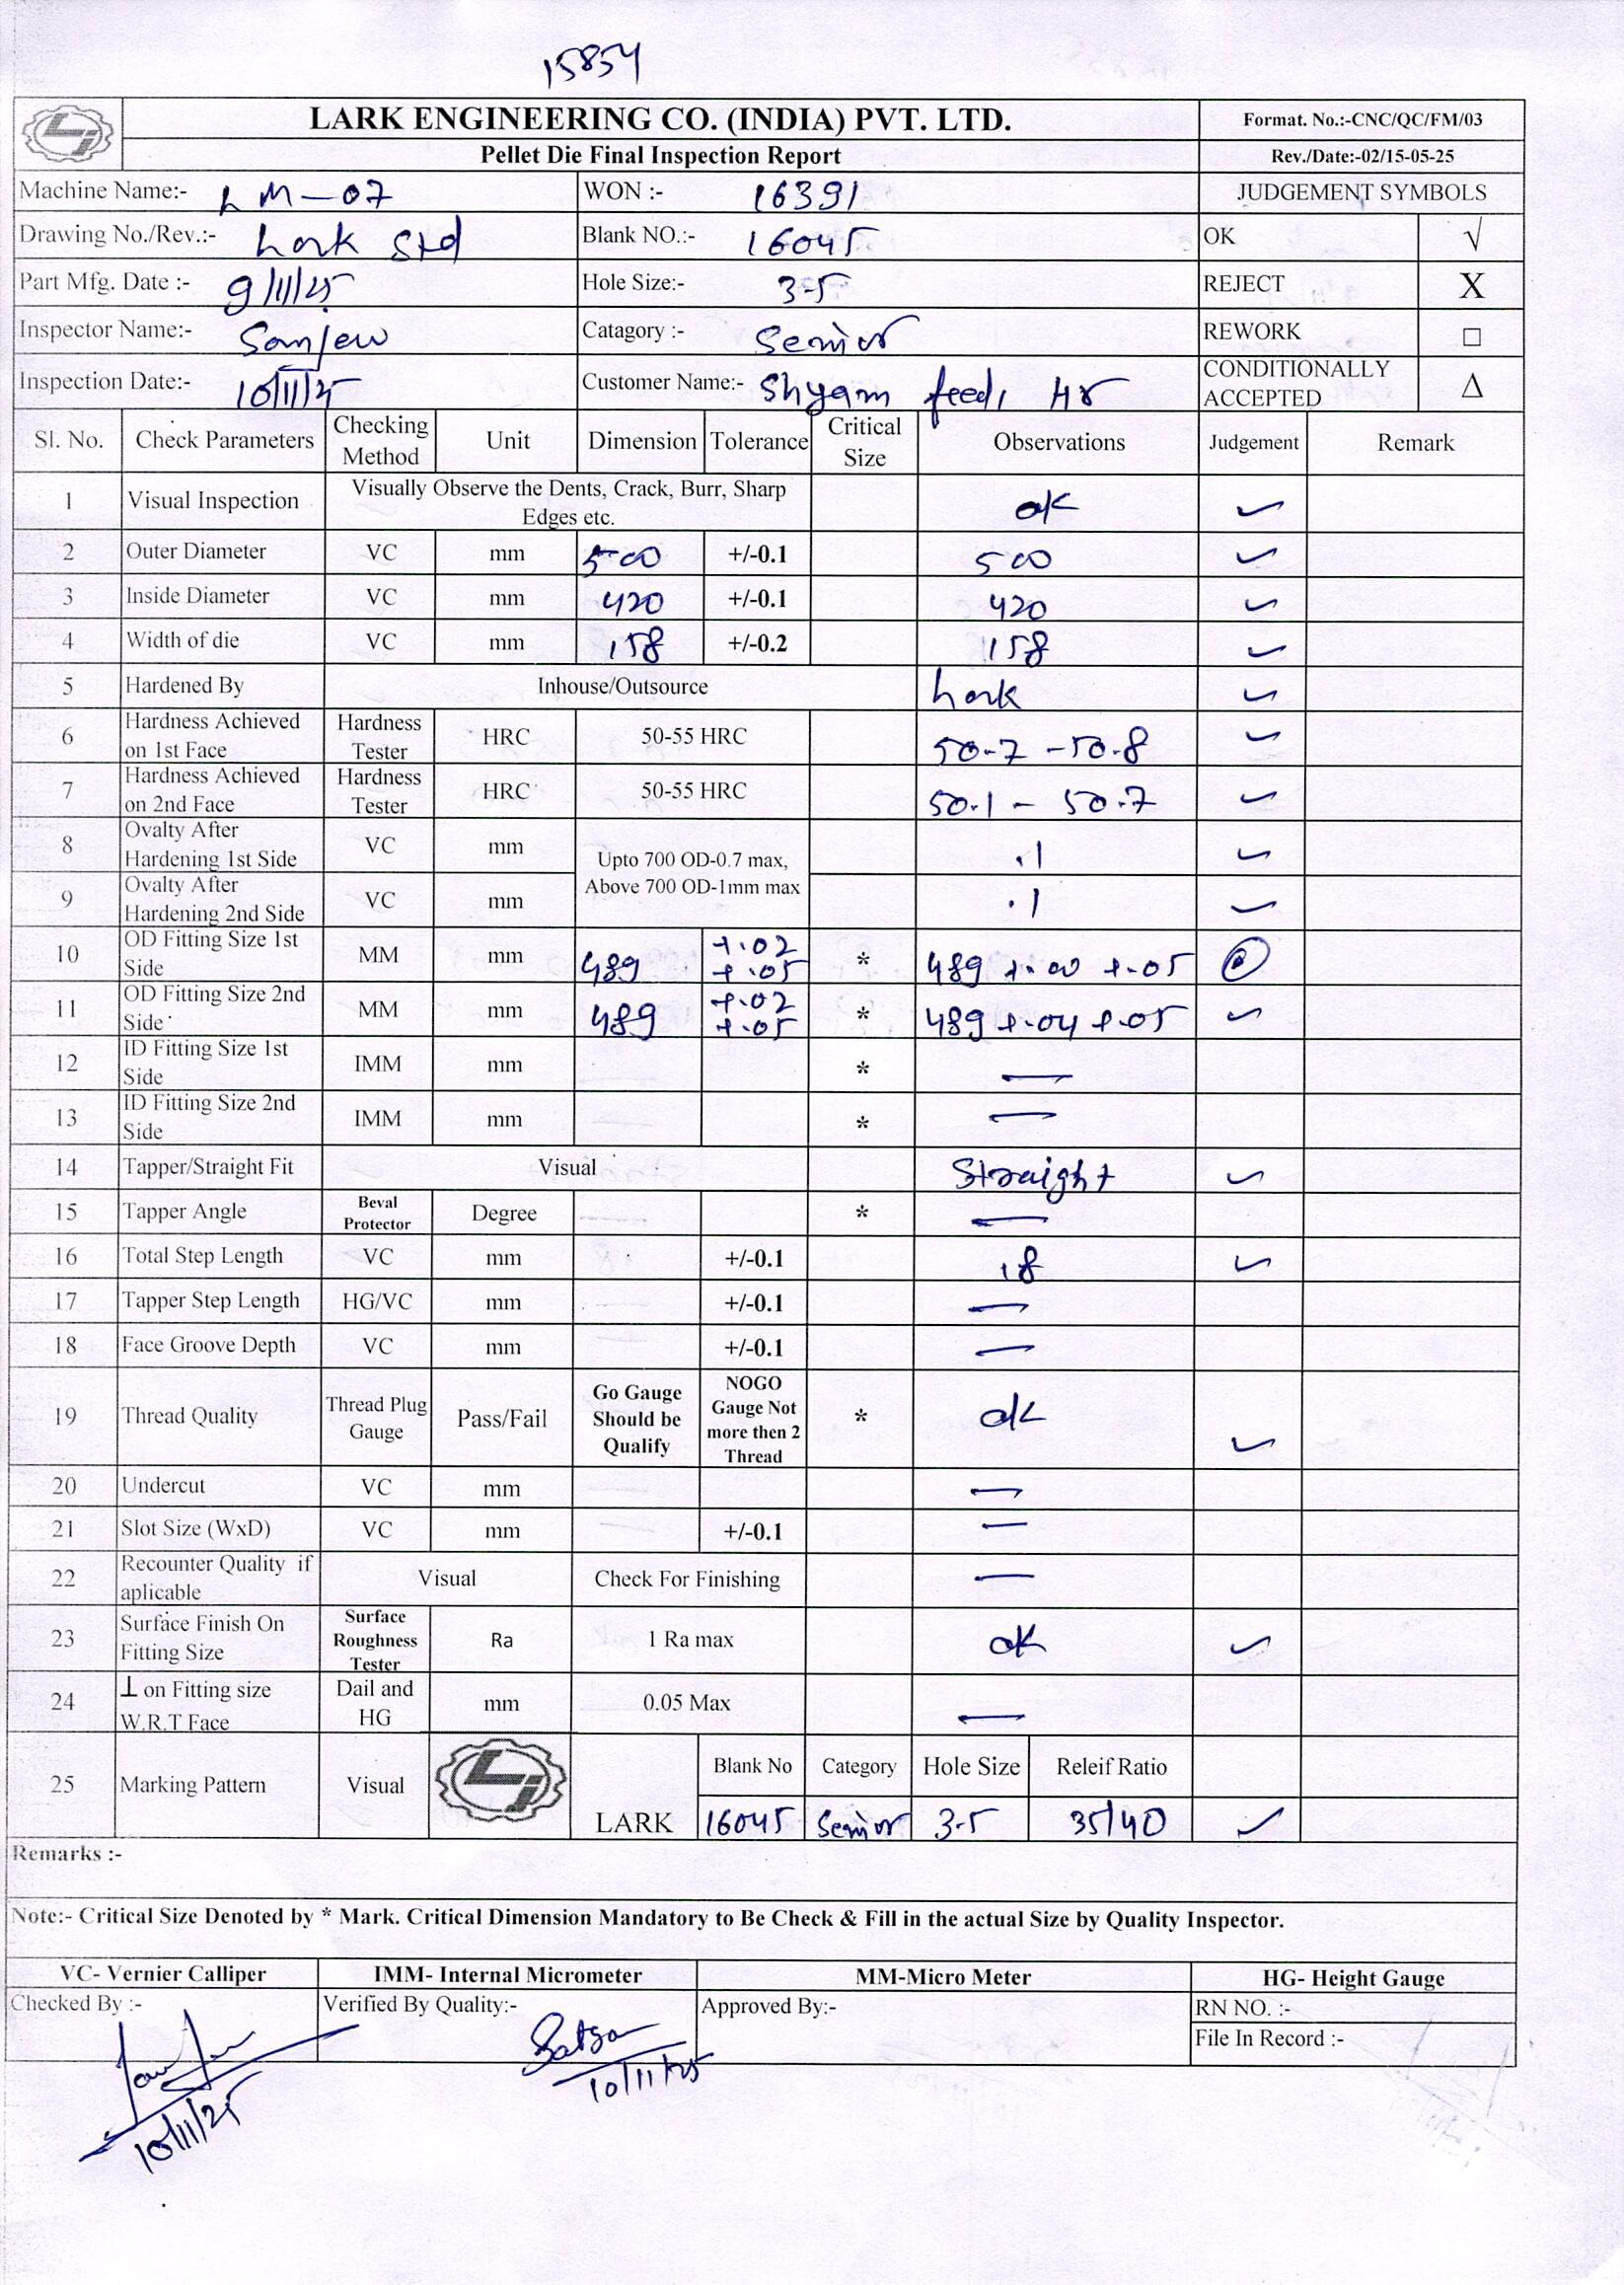 15854
LARK ENGINEERING CO. (INDIA) PVT. LTD.
Format. No.:-CNC/QC/FM/03
Pellet Die Final Inspection Report
Rev./Date:-02/15-05-25
Machine Name:- LM-07 WON :- 16391 JUDGEMENT SYMBOLS
Drawing No./Rev.:- Lark Std Blank NO.:- 16045 OK √
Part Mfg. Date :- 9/11/25 Hole Size:- 3-5 REJECT X
Inspector Name:- Sanjew Catagory :- Senior REWORK □
Inspection Date:- 10/11/25 Customer Name:- Shyam feed, Hr CONDITIONALLY ACCEPTED Δ
Sl. No. Check Parameters Checking Method Unit Dimension Tolerance Critical Size Observations Judgement Remark
1 Visual Inspection Visually Observe the Dents, Crack, Burr, Sharp Edges etc. ok ✓
2 Outer Diameter VC mm 500 +/-0.1 500 ✓
3 Inside Diameter VC mm 420 +/-0.1 420 ✓
4 Width of die VC mm 158 +/-0.2 158 ✓
5 Hardened By Inhouse/Outsource Lark ✓
6 Hardness Achieved on 1st Face Hardness Tester HRC 50-55 HRC 50-7 -50.8 ✓
7 Hardness Achieved on 2nd Face Hardness Tester HRC 50-55 HRC 50.1 - 50.7 ✓
8 Ovalty After Hardening 1st Side VC mm Upto 700 OD-0.7 max, Above 700 OD-1mm max .1 ✓
9 Ovalty After Hardening 2nd Side VC mm .1 ✓
10 OD Fitting Size 1st Side MM mm 489 +.02 +.05 * 489 +.00 +.05
11 OD Fitting Size 2nd Side MM mm 489 +.02 +.05 * 489 +.04 +.05 ✓
12 ID Fitting Size 1st Side IMM mm * —
13 ID Fitting Size 2nd Side IMM mm * —
14 Tapper/Straight Fit Visual Straight ✓
15 Tapper Angle Beval Protector Degree * —
16 Total Step Length VC mm +/-0.1 18 ✓
17 Tapper Step Length HG/VC mm +/-0.1 —
18 Face Groove Depth VC mm +/-0.1 —
19 Thread Quality Thread Plug Gauge Pass/Fail Go Gauge Should be Qualify NOGO Gauge Not more then 2 Thread * ok ✓
20 Undercut VC mm —
21 Slot Size (WxD) VC mm +/-0.1 —
22 Recounter Quality if aplicable Visual Check For Finishing —
23 Surface Finish On Fitting Size Surface Roughness Tester Ra 1 Ra max ok ✓
24 ⊥ on Fitting size W.R.T Face Dail and HG mm 0.05 Max —
25 Marking Pattern Visual LARK Blank No Category Hole Size Releif Ratio
16045 Senior 3-5 35/40 ✓
Remarks :-
Note:- Critical Size Denoted by * Mark. Critical Dimension Mandatory to Be Check & Fill in the actual Size by Quality Inspector.
VC- Vernier Calliper IMM- Internal Micrometer MM-Micro Meter HG- Height Gauge
Checked By :- Verified By Quality:- Approved By:- RN NO. :-
File In Record :-
10/11/25 10/11/25